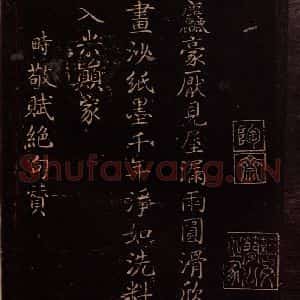 麤豪厭見屋漏雨圓滑欣
畫沙紙墨千年淨如洗料
入米顛家
時敬賦絕句贊
陶齋
Shufawang.CN